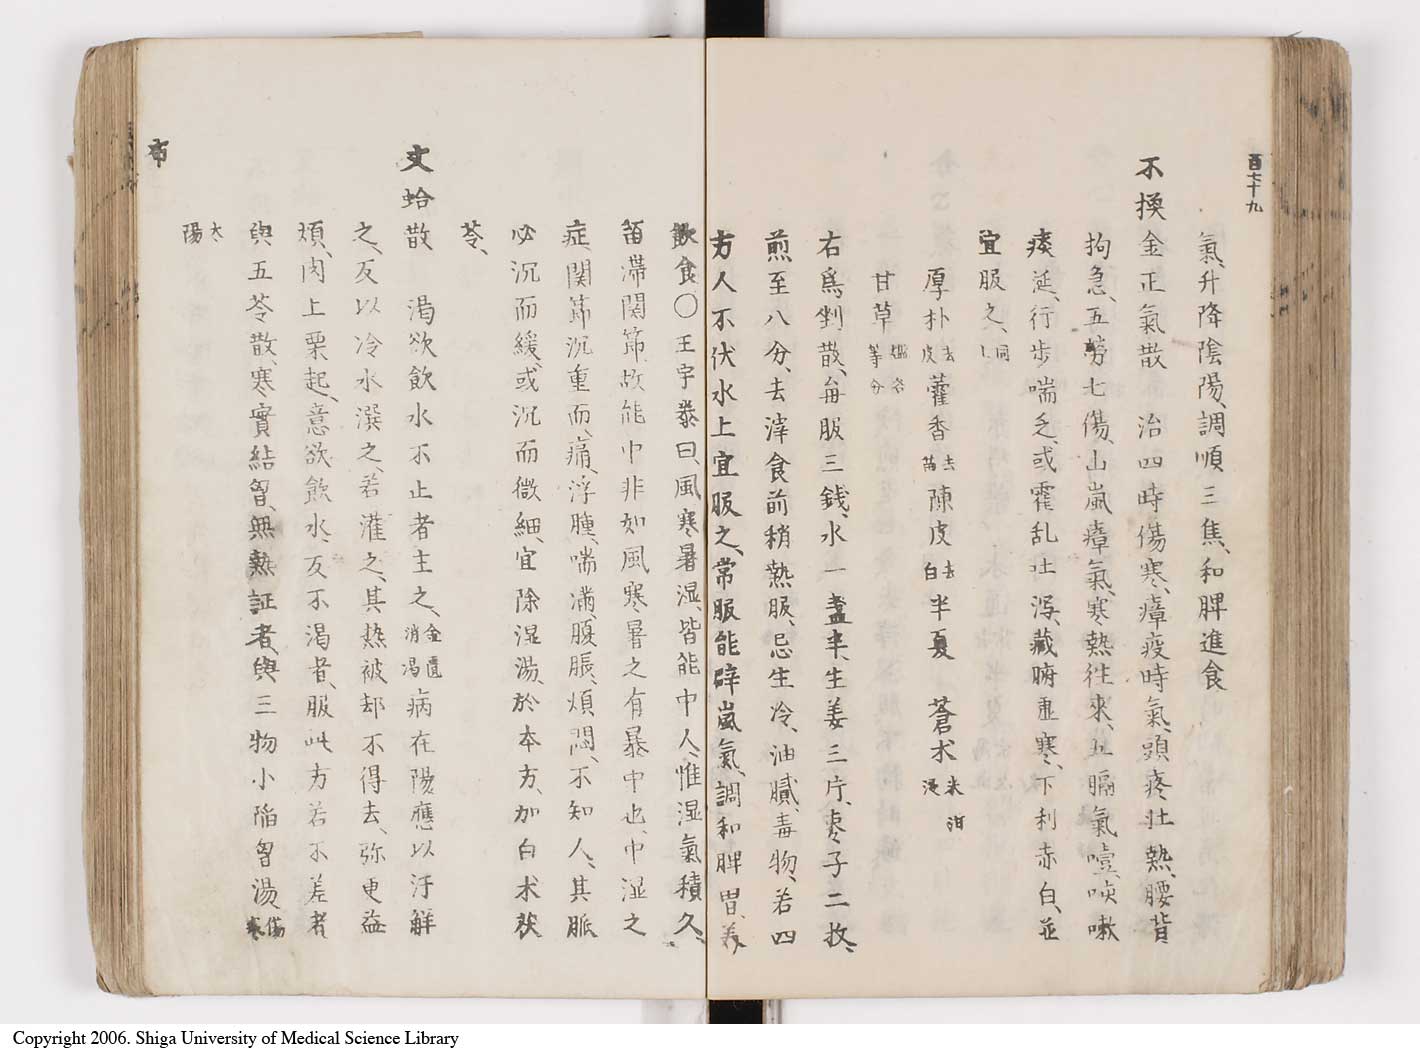 百七十九
氣、升降陰陽、調順三焦、和脾進食
不換金正氣散　治四時傷寒、瘴疫時氣、頭疼壮熱、腰背
拘急、五勞七傷、山嵐瘴氣、寒熱往來、五膈氣噎、咳嗽
痰延、行歩喘乏、或霍乱吐泻、藏腑虚寒、下利赤白、並
宜服之、
厚朴去皮 藿香去苗 陳皮去白 半夏 蒼朮米泔浸
甘草 等分
右爲剉散、毎服三錢、水一盞半、生姜三片、枣子二枚、
煎至八分、去滓食前稍熱服、忌生冷、油膩、毒物、若四
方人不伏水上宜服之、常服能辟嵐氣、調和脾胃、美
飲食〇王宇泰曰、風寒暑湿、皆能中人、惟湿氣積久、
留滞関節、故能中非如風寒暑之有暴中也、中湿之
症、関節沉重而痛、浮腫、喘滿、腹脹、煩悶、不知人、其脈
必沉而緩、或沉而微細、宜除湿湯、於本方、加白朮茯
苓、
文蛤散　渴欲飲水不止者主之、金匱消渴 病在陽應以汗解
之、反以冷水潠之、若灌之、其热被却不得去、弥更益
煩、肉上栗起、意欲飲水、反不渴者、服此方若不差者
與五苓散、寒實結胷、無熱証者、與三物小陥胷湯、傷寒
太陽